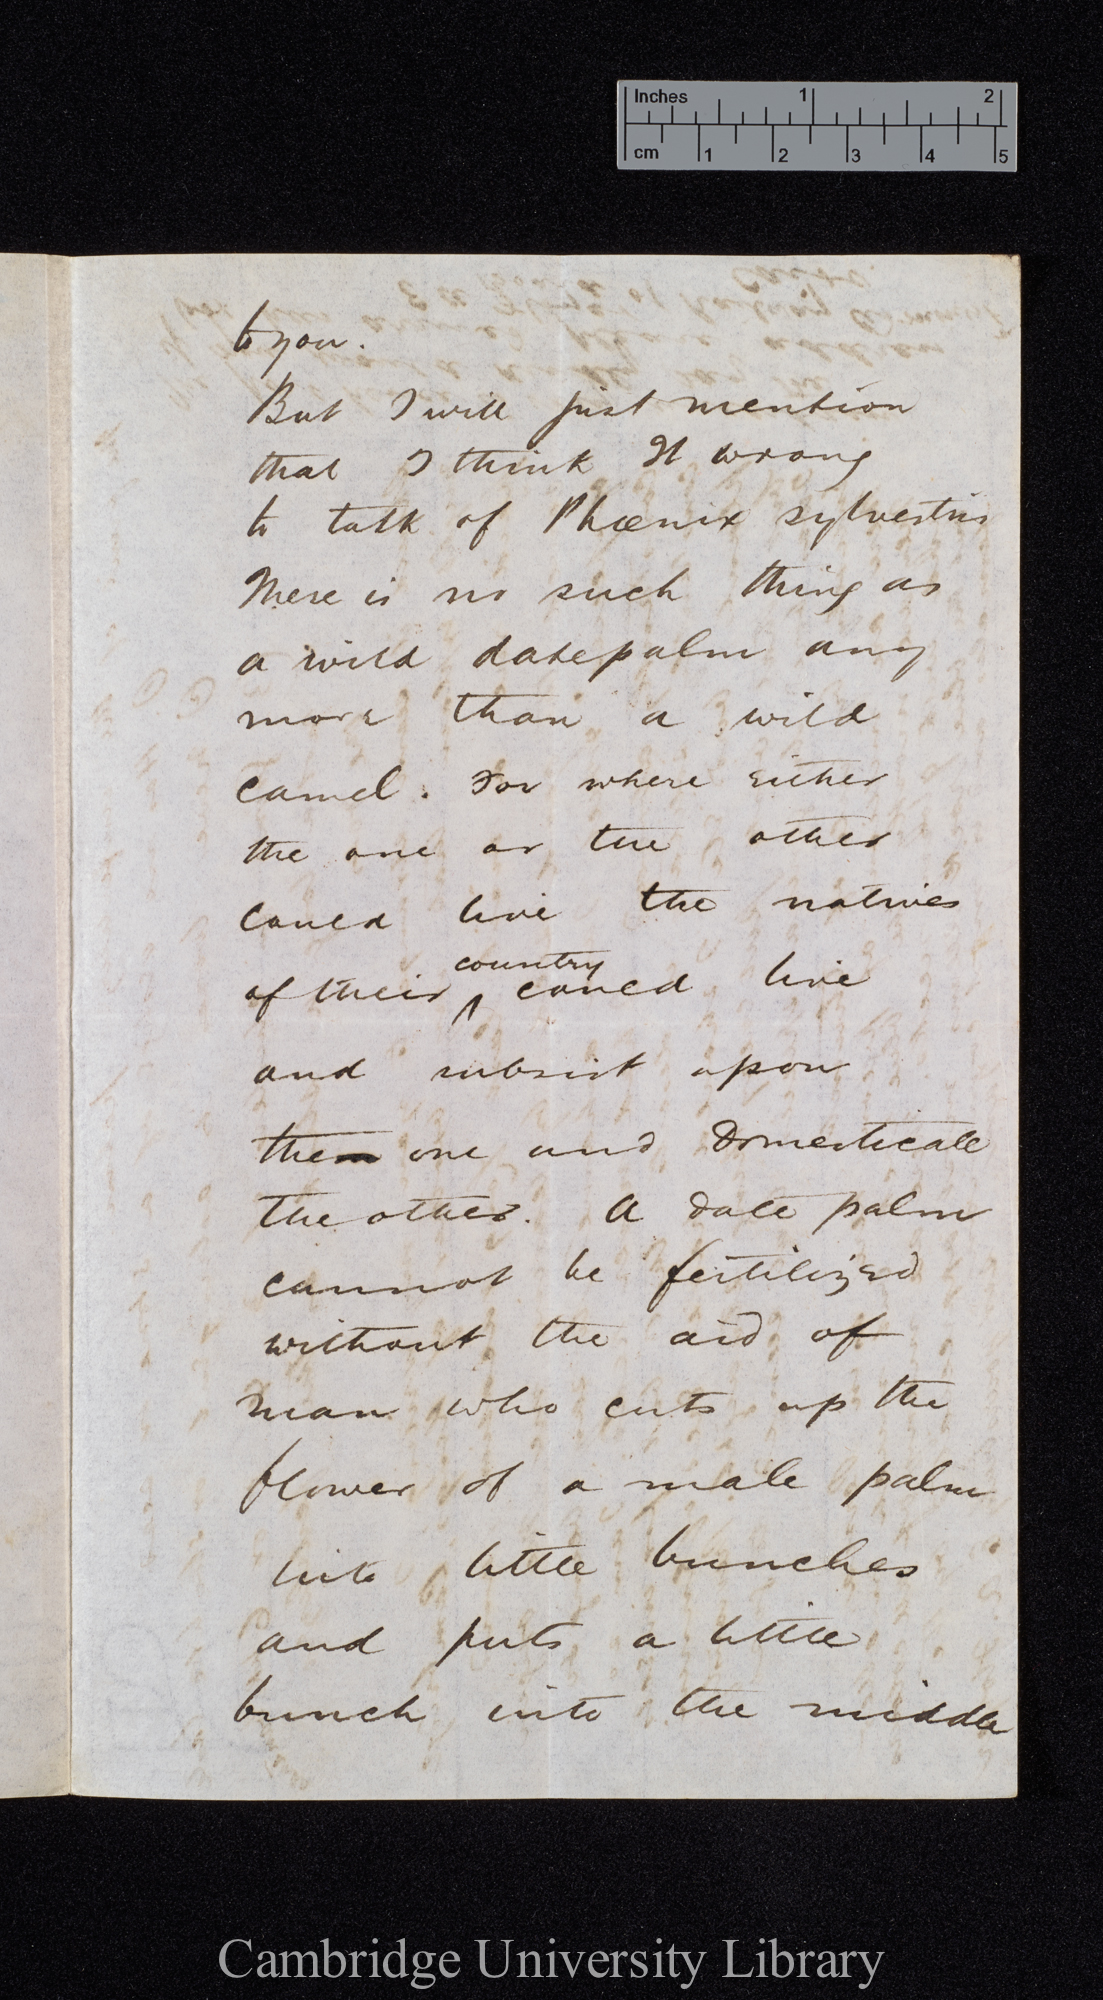 Inches 1 2
cm 1 2 3 4 5
to you.
But I will just mention
that I think It wrong
to talk of Phœnix sylvestris
There is no such thing as
a wild datepalm any
more than a wild
camel. For where either
the one or the other
could live the natives
of their country could live
and subsist upon
the one and domesticate
the other. A date palm
cannot be fertilized
without the aid of
man who cuts up the
flower of a male palm
into little bunches
and puts a little
bunch into the middle
Cambridge University Library